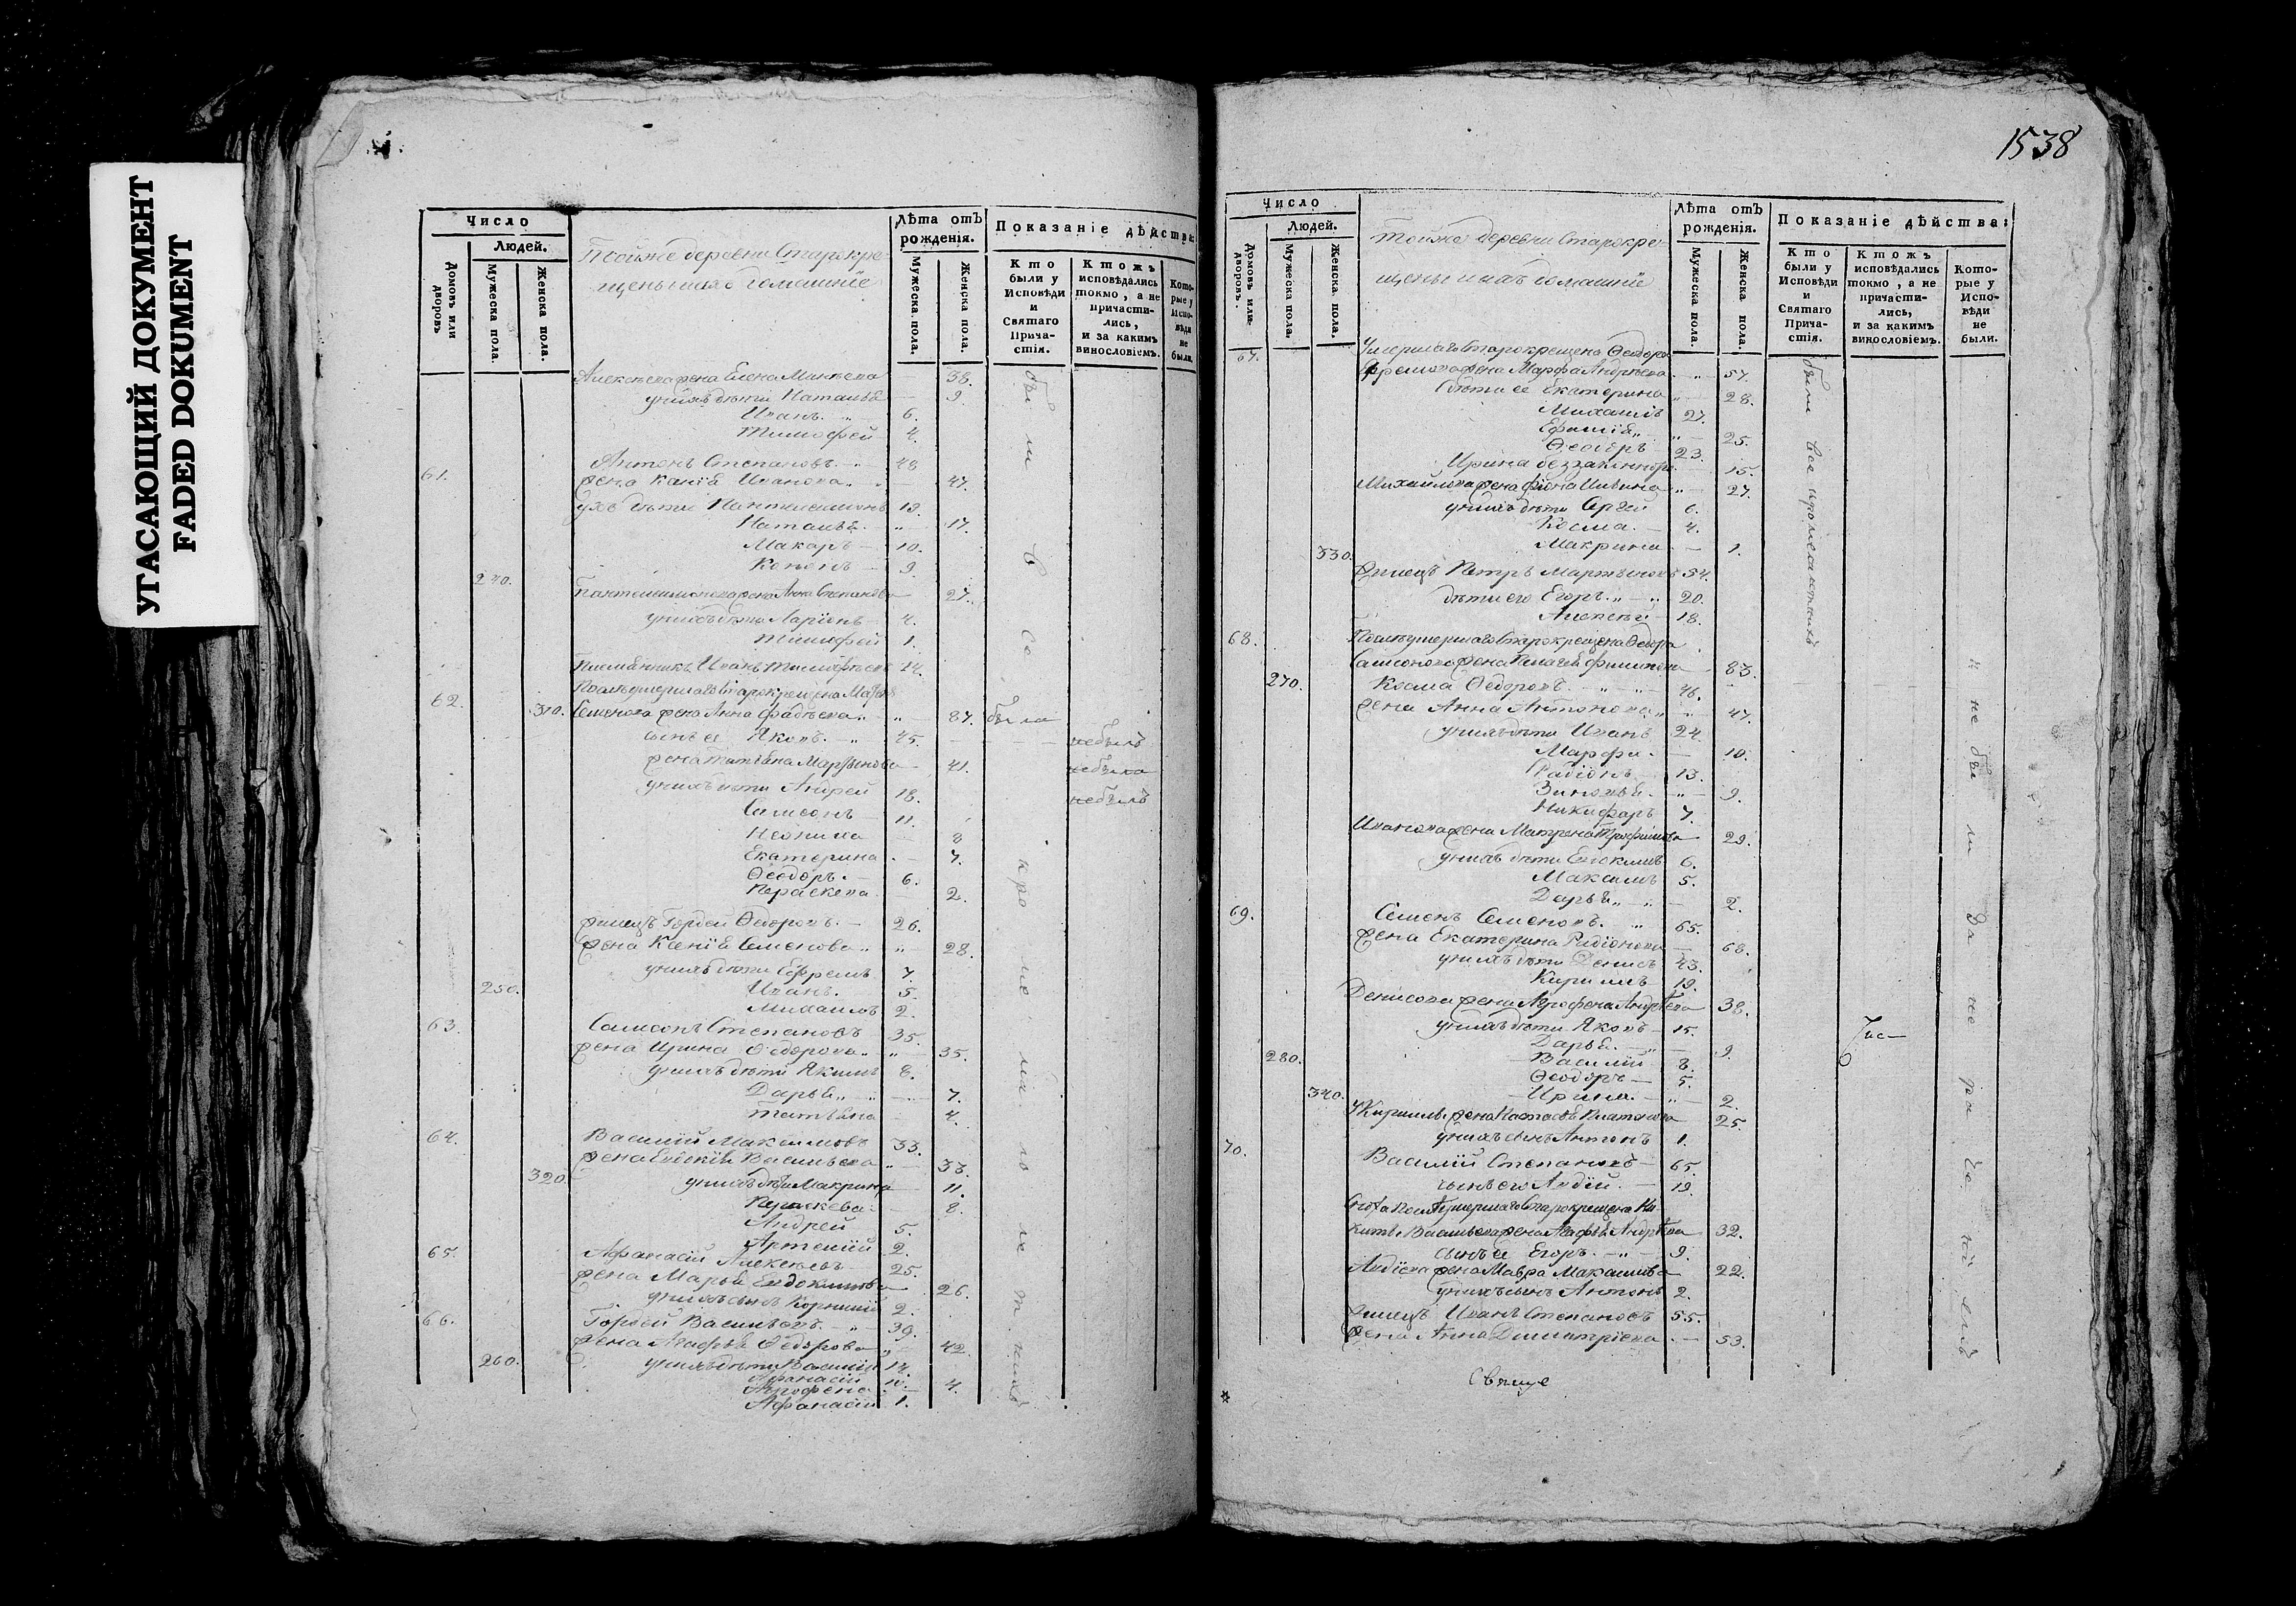 УГАСАЮЩИЙ ДОКУМЕНТ
FADED DOKUMENT
Число
Людей.
Домовъ или дворовъ
Мужеска пола.
Женска пола.
Тойже деревни Старокре
щены и ихъ домашніе
Лѣта отъ рожденія.
Мужеска пола.
Женска пола.
Показаніе дѣйства:
Кто были у Исповѣди и Святаго Прича-стія.
Ктожъ исповѣдались токмо, а не причасти-лись, и за какимъ винословіемъ.
Кото-рые у Испо-вѣди не были.
Алексѣева жена Елена Макѣева 38.
у нихъ дѣти Наталья 9.
Иванъ 6.
Тимофей 4.
61. Антонъ Степановъ 48
жена Ксенія Иванова 47.
ихъ дѣти Пантелеимонъ 18.
Наталья 17.
Макаръ 10.
240. Кононъ 9.
Пантелеимонова жена Анна Степанова 27.
у нихъ дѣти Ларіонъ 4.
Тимофей 1.
Племянникъ Иванъ Тимофѣевъ 24.
62. Послѣ умершаго Старокрещена
310. Семенова жена Анна Фадѣева 87. была
сынъ ея Яковъ 45. небылъ
жена Татьяна Мартынова 41. небыла
у нихъ дѣти Андрей 18. небылъ
Самсонъ 11.
Неонила 8
Екатерина 7.
Ѳеодоръ 6.
Параскева 2.
жилецъ Гордей Ѳедоровъ 26.
жена Ксенія Семенова 28.
у нихъ дѣти Ефремъ 7.
250. Иванъ 5.
Михаилъ 2.
63. Самсонъ Степановъ 35.
жена Ирина Ѳедорова 35.
у нихъ дѣти Якимъ 8.
Дарья 7.
Татьяна 4.
64. Василій Максимовъ 33.
жена Евдокія Васильева 33.
320. у нихъ дѣти Макрина 11.
Параскева 8.
Андрей 5.
Артемій 2.
65. Афанасій Алексѣевъ 25.
жена Марья Евдокимова 26.
у нихъ сынъ Корнилій 2.
66. Гордей Васильевъ 39.
жена Агафья Ѳедорова 42.
260. у нихъ дѣти Василій 14.
Афанасій 10.
Агрофена 4.
Афанасій 1.
были все кроме малолетнихъ
1538
Число
Людей.
Домовъ или дворовъ.
Мужеска пола.
Женска пола.
Тойже деревни Старокре
щены и ихъ домашніе
Лѣта отъ рожденія.
Мужеска пола.
Женска пола.
Показаніе дѣйства:
Кто были у Исповѣди и Святаго Прича-стія.
Ктожъ исповѣдались токмо, а не причасти-лись, и за какимъ винословіемъ.
Кото-рые у Испо-вѣди не были.
67. Умершаго Старокрещена Ѳеодора
Ефремова жена Марфа Андрѣева 57.
дѣти ее Екатерина 28.
Михаилъ 27.
25.
Ѳеодоръ 23.
Ирина 15.
Михайлова жена Ильина 27.
у нихъ дѣти Сергей 6.
Косма 4.
330. Макрина 1.
жилецъ Петръ Мартыновъ 54.
дѣти его Егоръ 20.
Алексѣй 18.
68. Послѣ умершаго Старокрещена Ѳедора
Самсонова жена Пелагея Филипова 83.
270. Косма Ѳедоровъ 46.
жена Анна Антонова 47.
у нихъ дѣти Иванъ 24.
Марфа 10.
Радіонъ 13.
Зиновья 9.
Никифоръ 7.
Иванова жена Матрена Трофимова 29.
у нихъ дѣти Евдокимъ 6.
Максимъ 5.
Дарья 2.
69. Семенъ Семеновъ 65.
жена Екатерина Радіонова 68.
у нихъ дѣти Денисъ 43.
Кирилъ 19.
Денисова жена Агрофена Андрѣева 38.
у нихъ дѣти Яковъ 15.
Дарья 9.
280. Василій 8.
Ѳеодоръ 5.
340. Ирина 2.
У Кирилы жена Настасья Платонова 25.
у нихъ сынъ Антонъ 1.
70. Василій Степановъ 65.
сынъ его Авдѣй 19.
Сноха послѣ умершаго Старокрещена Ни
киты Васильева жена Агафья Андрѣева 32.
сынъ ея Егоръ 9.
Авдѣева жена Мавра Максимова 22.
у нихъ сынъ Антонъ 2.
жилецъ Иванъ Степановъ 55.
жена Анна Димитріева 53.